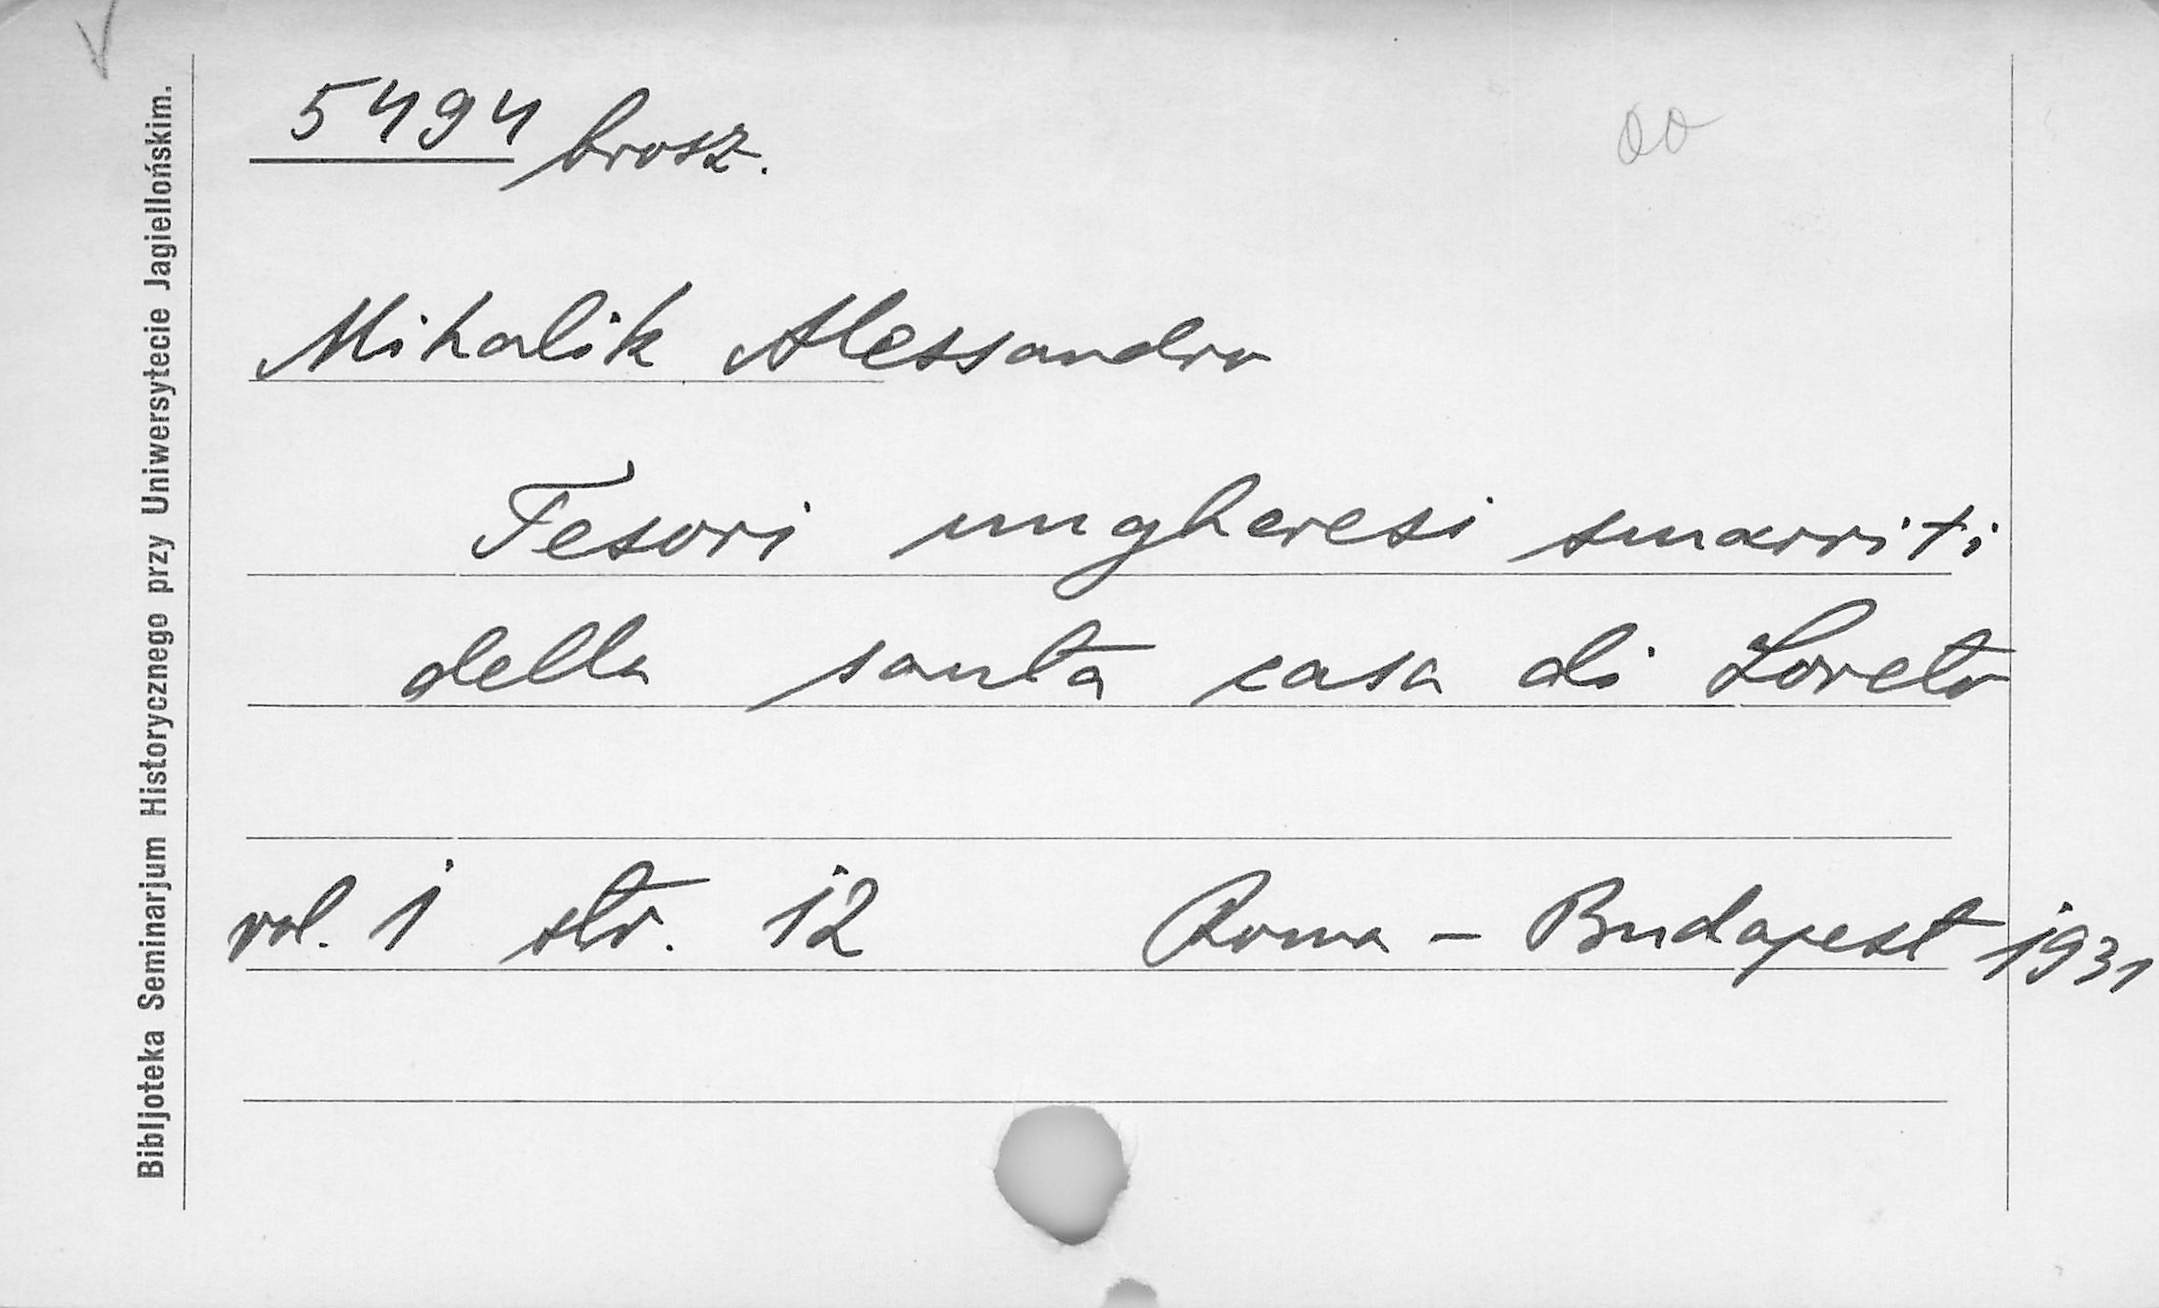 5494 brosz.
Mihalik Alessandro
Tesori ungheresi smarriti
della santa casa di Loreto
vol. 1 str. 12 Roma - Budapest 1931
Bibljoteka Seminarjum Historycznego przy Uniwersytecie Jagiellońskim.